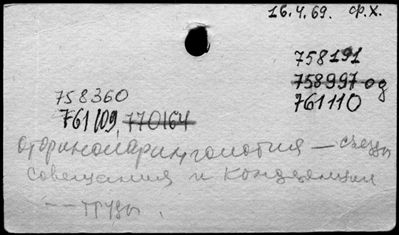 16.4.69. ф.х.
758191
758997 од
761110
758360
761109, 770164
оторинопарингология — съезды
совещания и конференции
— — труды.